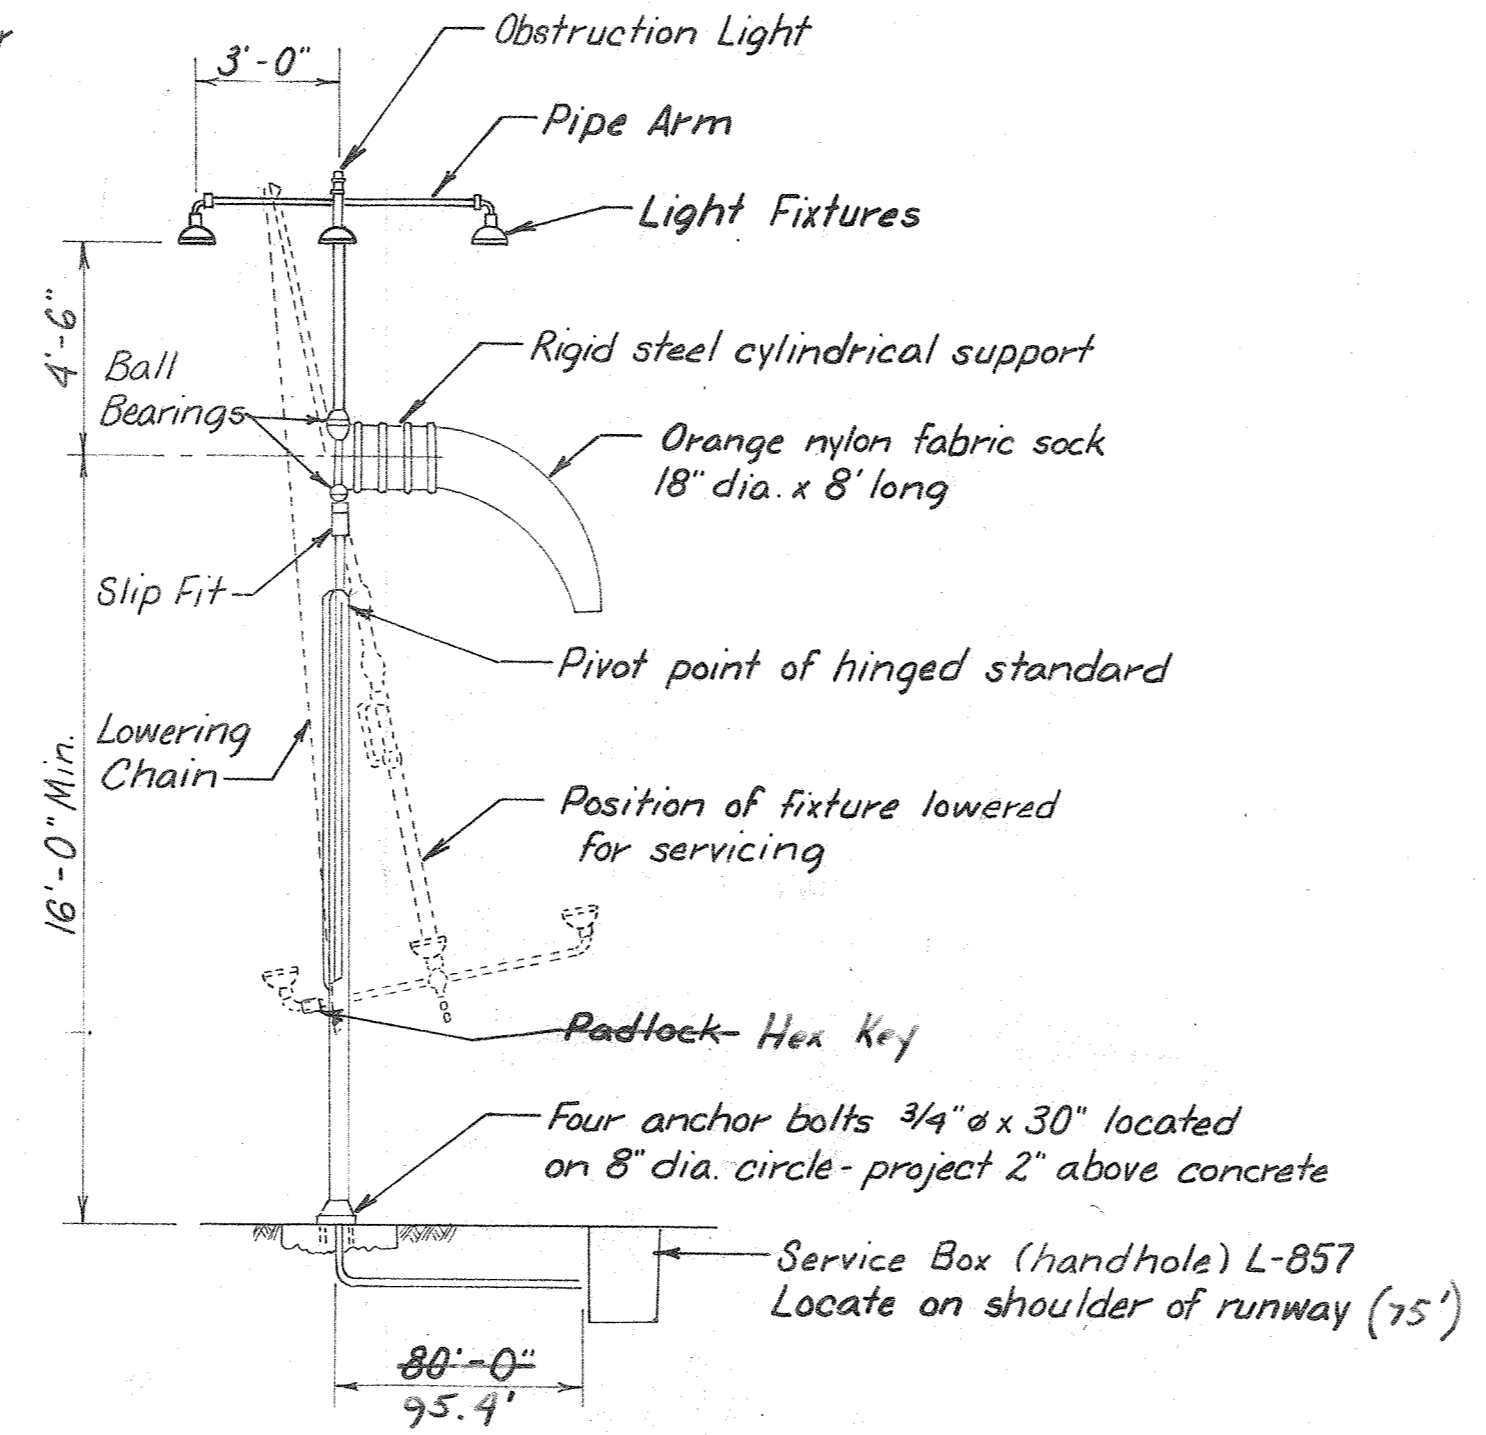 Obstruction Light
3'-0"
Pipe Arm
Light Fixtures
4'-6"
Ball
Bearings
Rigid steel cylindrical support
Orange nylon fabric sock
18" dia. x 8' long
Slip Fit
Pivot point of hinged standard
Lowering
Chain
16'-0" Min.
Position of fixture lowered
for servicing
Padlock Hex Key
Four anchor bolts 3/4" ø x 30" located
on 8" dia. circle - project 2" above concrete
Service Box (handhole) L-857
Locate on shoulder of runway (75')
80'-0"
95.4'